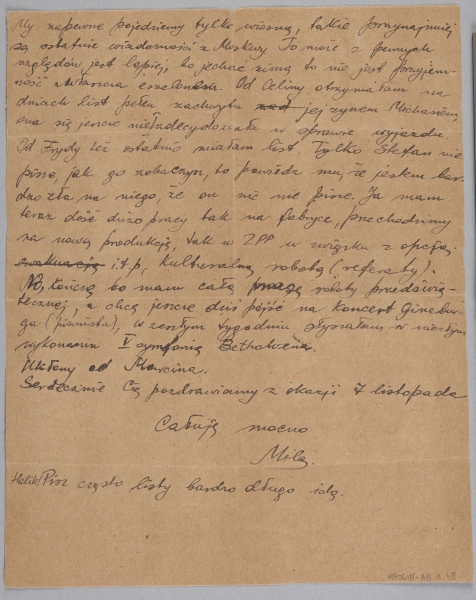 My napewno pojedziemy tylko wiosną, takie przynajmniej
są ostatnie wiadomości z Moskwy. To może z pewnych
względów jest lepiej, bo jechać zimą to nie jest przyjem-
ność eszelonem. Od Celiny otrzymałam na
dniach list pełen zachwytu nad jej synem Michasiem,
ona się jeszcze niezdecydowała w sprawie wyjazdu.
Od Frydy też ostatnio miałam list. Tylko Stefan nie
pisze, jak go zobaczysz, to powiedz mu, że jestem bar-
dzo zła na niego, że on nic nie pisze. Ja mam
teraz dość dużo pracy tak na fabryce, przechodzimy
na nową produkcję, tak w ZPP w związku z opcją,
ewakuacją i.t.p, kulturalną robotą (referaty).
No, kończę bo mam całą roboty przedświą-
teczną, a chcę jeszcze dziś pójść na koncert Ginsbur-
ga (pianista), w zeszłym tygodniu słyszałam w
wykonaniu V symfonię Bethowena.
Ukłony od Marcina.
Serdecznie Cię pozdrawiamy z okazji 7 listopada
Całuję mocno
Mila.
Halik! Pisz często listy bardzo długo idą.